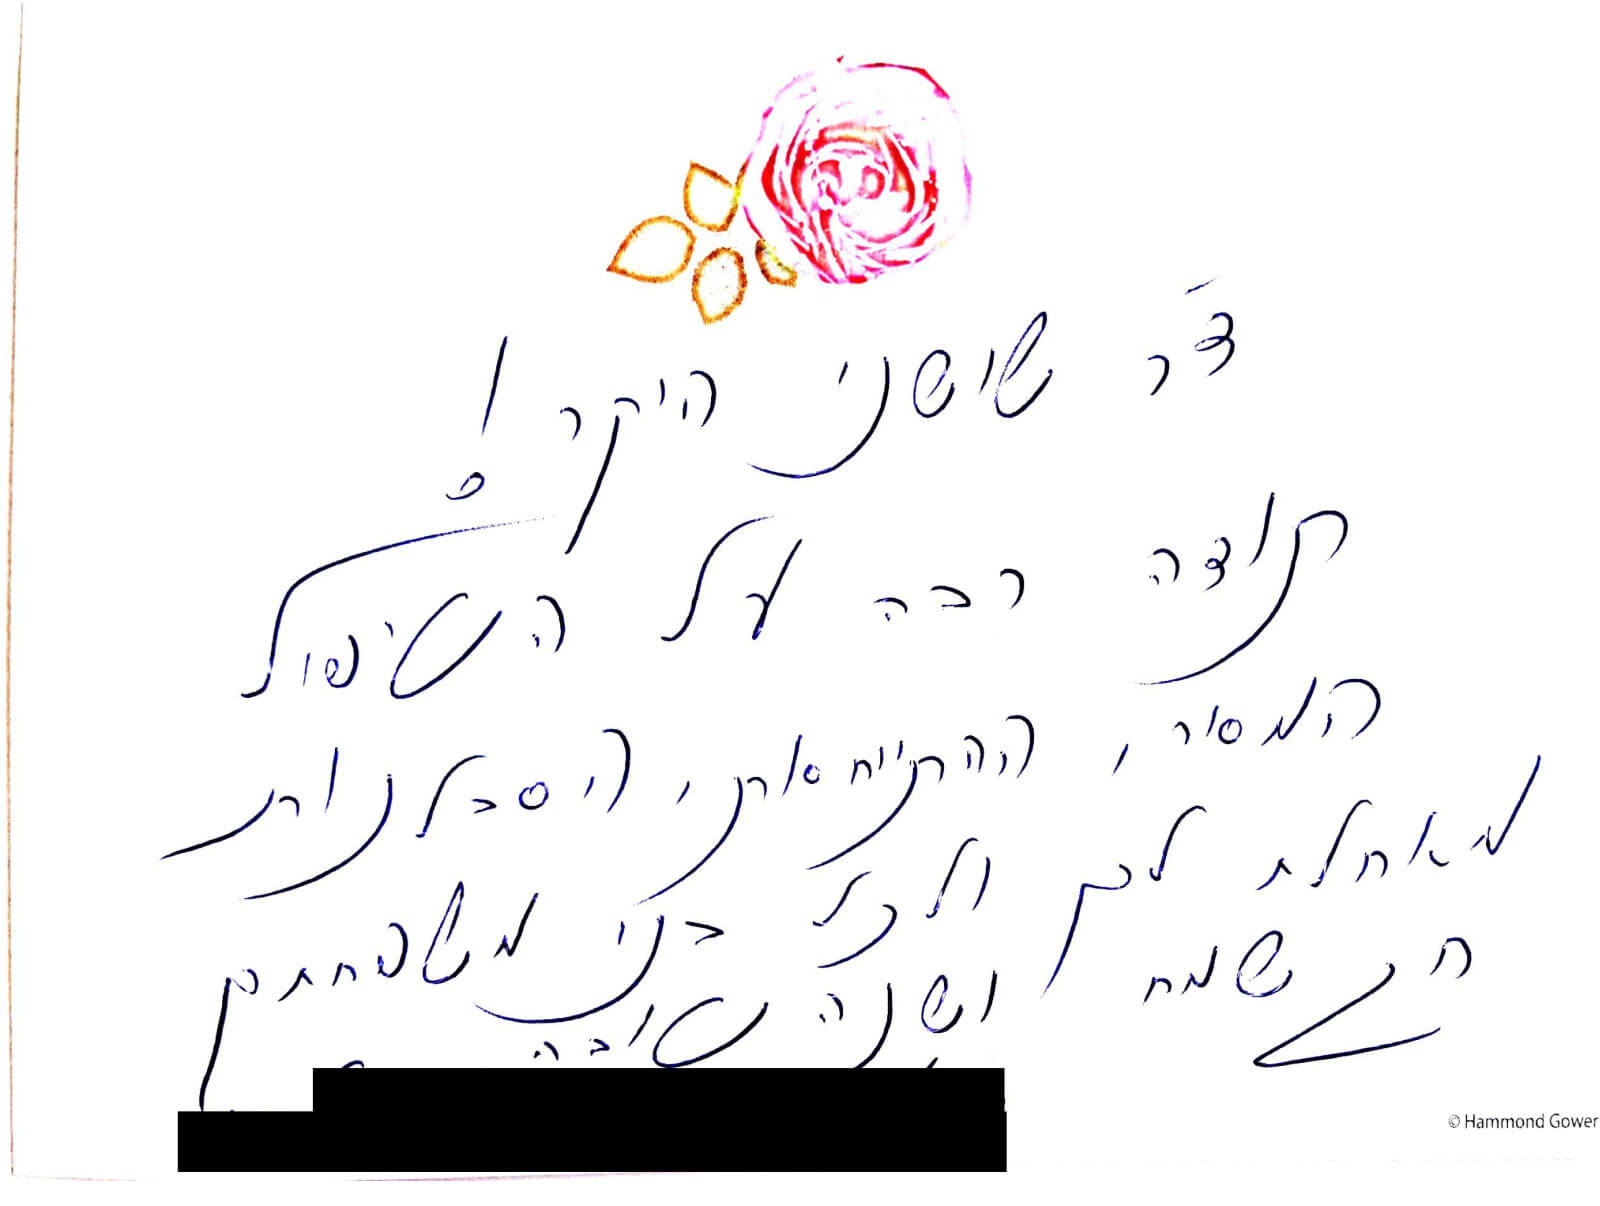 ד"ר שושני היקר!
תודה רבה על הטיפול
המסור, ההתייחסות, הסבלנות
מאחלת לכם ולכל בני משפחתכם
חג שמח ושנה טובה
© Hammond Gower